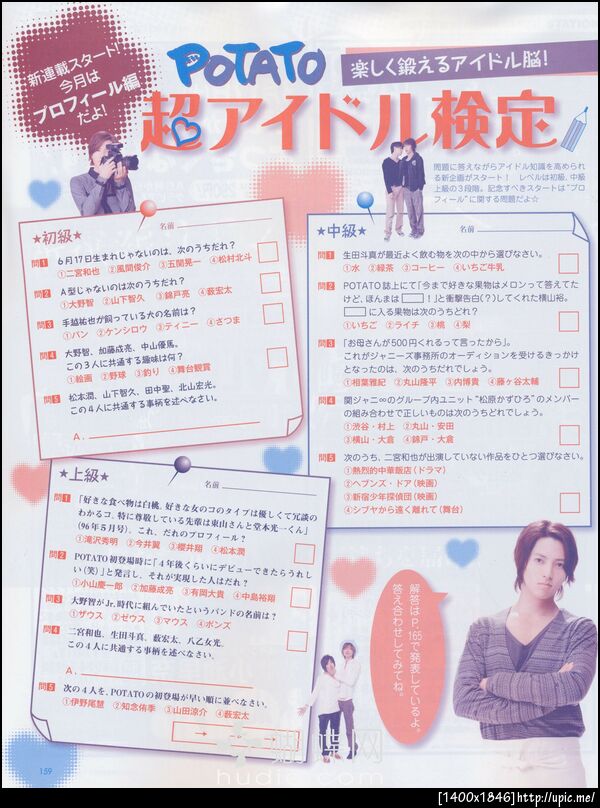 新連載スタート!
今月は
プロフィール編
だよ!
POTATO
楽しく鍛えるアイドル脳!
超アイドル検定
問題に答えながらアイドル知識を高められ
る新企画がスタート! レベルは初級、中級
上級の3段階。記念すべきスタートは“プロ
フィール”に関する問題だよ☆
★初級★
名前
問1 6月17日生まれじゃないのは、次のうちだれ?
①二宮和也 ②風間俊介 ③五関晃一 ④松村北斗
問2 A型じゃないのは次のうちだれ?
①大野智 ②山下智久 ③錦戸亮 ④薮宏太
問3 手越祐也が飼っている犬の名前は?
①バン ②ケンシロウ ③ティニー ④さつま
問4 大野智、加藤成亮、中山優馬。
この3人に共通する趣味は何?
①絵画 ②野球 ③釣り ④舞台観賞
問5 松本潤、山下智久、田中聖、北山宏光。
この4人に共通する事柄を述べなさい。
A.
★中級★
名前
問1 生田斗真が最近よく飲む物を次の中から選びなさい。
①水 ②緑茶 ③コーヒー ④いちご牛乳
問2 POTATO誌上にて「今まで好きな果物はメロンって答えてた
けど、ほんまは□!」と衝撃告白(?)してくれた横山裕。
□に入る果物は次のうちどれ?
①いちご ②ライチ ③桃 ④梨
問3 「お母さんが500円くれるって言ったから」。
これがジャニーズ事務所のオーディションを受けるきっかけ
となったのは、次のうちだれでしょう。
①相葉雅紀 ②丸山隆平 ③内博貴 ④藤ヶ谷太輔
問4 関ジャニ∞のグループ内ユニット“松原かずひろ”のメンバー
の組み合わせで正しいものは次のうちどれでしょう。
①渋谷・村上 ②丸山・安田
③横山・大倉 ④錦戸・大倉
問5 次のうち、二宮和也が出演していない作品をひとつ選びなさい。
①熱烈的中華飯店(ドラマ)
②ヘブンズ・ドア(映画)
③新宿少年探偵団(映画)
④シブヤから遠く離れて(舞台)
★上級★
名前
問1 「好きな食べ物は白桃。好きな女のコのタイプは優しくて冗談の
わかるコ。特に尊敬している先輩は東山さんと堂本光一くん」
(96年5月号)。これ、だれのプロフィール?
①滝沢秀明 ②今井翼 ③櫻井翔 ④松本潤
問2 POTATO初登場時に「4年後くらいにデビューできたらうれし
い(笑)」と発言し、それが実現した人はだれ?
①小山慶一郎 ②加藤成亮 ③有岡大貴 ④中島裕翔
問3 大野智がJr.時代に組んでいたというバンドの名前は?
①ザウス ②ゼウス ③マウス ④ボンズ
問4 二宮和也、生田斗真、薮宏太、八乙女光。
この4人に共通する事柄を述べなさい。
A.
問5 次の4人を、POTATOの初登場が早い順に並べなさい。
①伊野尾慧 ②知念侑李 ③山田涼介 ④薮宏太
→ →
解答はP.165で発表しているよ。
答え合わせしてみてね。
159
蝴蝶网
hudie.com
[1400x1846]http://upic.me/